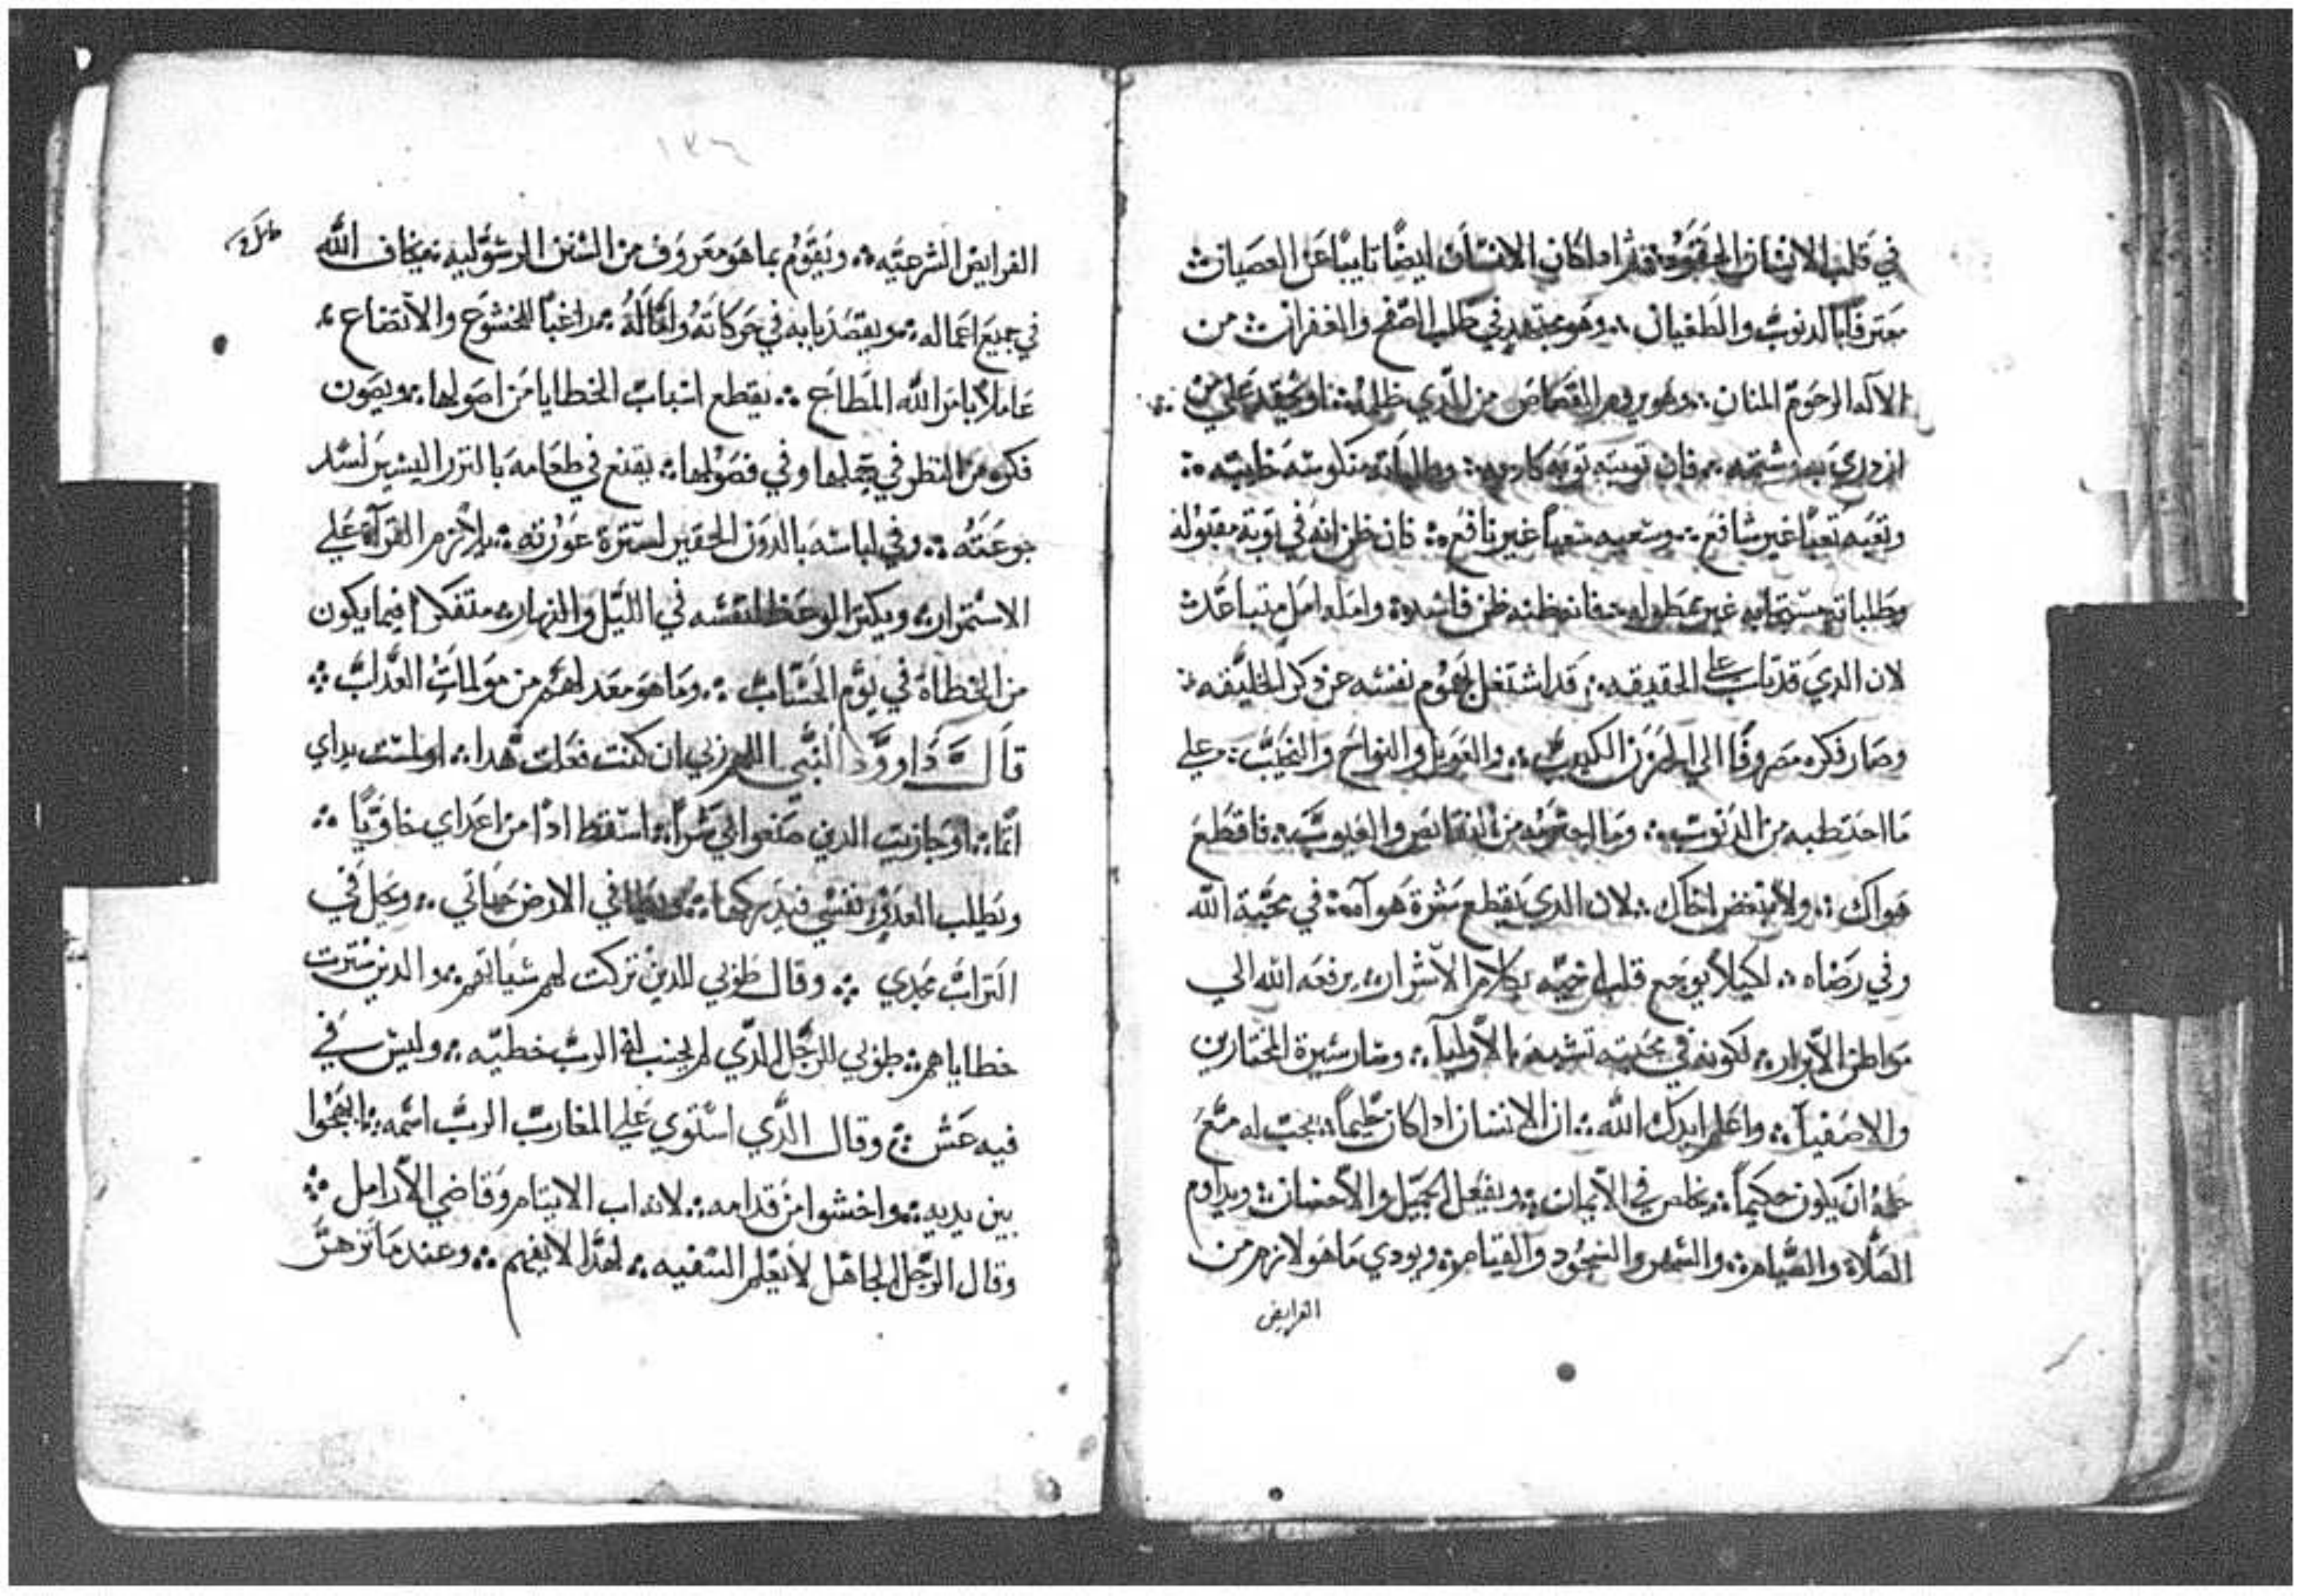 في قلب الانسان الحقود ثم اذا كان الانسان ايضًا تايبًا عن العصيان
معترفًا بالدنوب والطغيان وهو مجتهد في طلب الصفح والغفران من
الآله الرحوم المنان وهو يروم القصاص من الذي ظلمه او يحقد علي من
ازدري به وشتمه فان توبته توبه كاذبه وطلباته منكوسه خايبه
وتعبه تعبًا غير شافع وسعيه سعيًا غير نافع فان ظن انه في توبة مقبوله
وطلباته مستجابه غير ممطوله فانه ظنه ظن فاسد وامله امل متباعد
لان الدي قد تاب علي الحقيقه قد اشتغل بهموم نفسه عن دكر الخليقه
وصار فكره مصروفًا الي الحزن الكييب والعويل والنواح والنحيب علي
ما احتطبه من الدنوب وما اجترمه من النقايص والعيوب فاقطع
هواك ولا تبغض اخاك لان الدي يقطع ثمرة هواه في محبة الله
وفي رضاه لكيلا يوجع قلب اخيه بكلام الاشرار يرفعه الله الي
مواطن الآبرار لكونه في محبته تشبه بالآوليآ وسار سيرة المختارين
والاصفيآ واعلم ايدك الله ان الانسان اداكان حليماً يجب له مع
حلمه ان يكون حكيماً يخلص في الآيمان ويفعل الجميل والآحسان ويداوم
الصلاة والصيام والسهر والسجود والقيام ويودي ما هو لازم من
الفرايض
١٣٤
الفرايض الشرعيه ويقوم بما هو معروف من السنن الرسوليه يخاف الله
في جميع اعماله ويقتصد بابه في حركاته واقواله راغبًا للخشوع والآتضاع
عاملاً بامر الله المطاع يقطع اسباب الخطايا من اصولها ويصون
فكره من النظر في جملها وفي فصولها يقنع في طعامه بالنزر اليسير لسد
جوعته وفي لباسه بالدون الحقير لسترة عورته يلازم القرآة علي
الاستمرار ويكثر الوعظ لنفسه في الليل والنهار متفكرا فيما يكون
من الخطاة في يوم الحساب وما هو معد لهم من مولمات العداب
قال داوود النبي اللهم ربي ان كنت فعلت هدا او لمست يداي
اثما او جازيت الدين صنعوا لي شراً اسقط ادًا من اعداي خاويًا
ويطلب العدو نفسي فيدركها ويطا في الارض حياتي ويحل في
التراب مجدي وقال طوبي للدين تركت لهم سياتهم والدين سترت
خطاياهم طوبي للرجل الدي لم يحسب له الرب خطيه وليس في
فيه غش وقال الدي استوي علي المغارب الرب اسمه ابتهجوا
بين يديه واخشوا من قدامه لانه اب الايتام وقاضي الآرامل
وقال الرجل الجاهل لا يعلم السفيه لهدا لا يفهم وعند ما تزهر